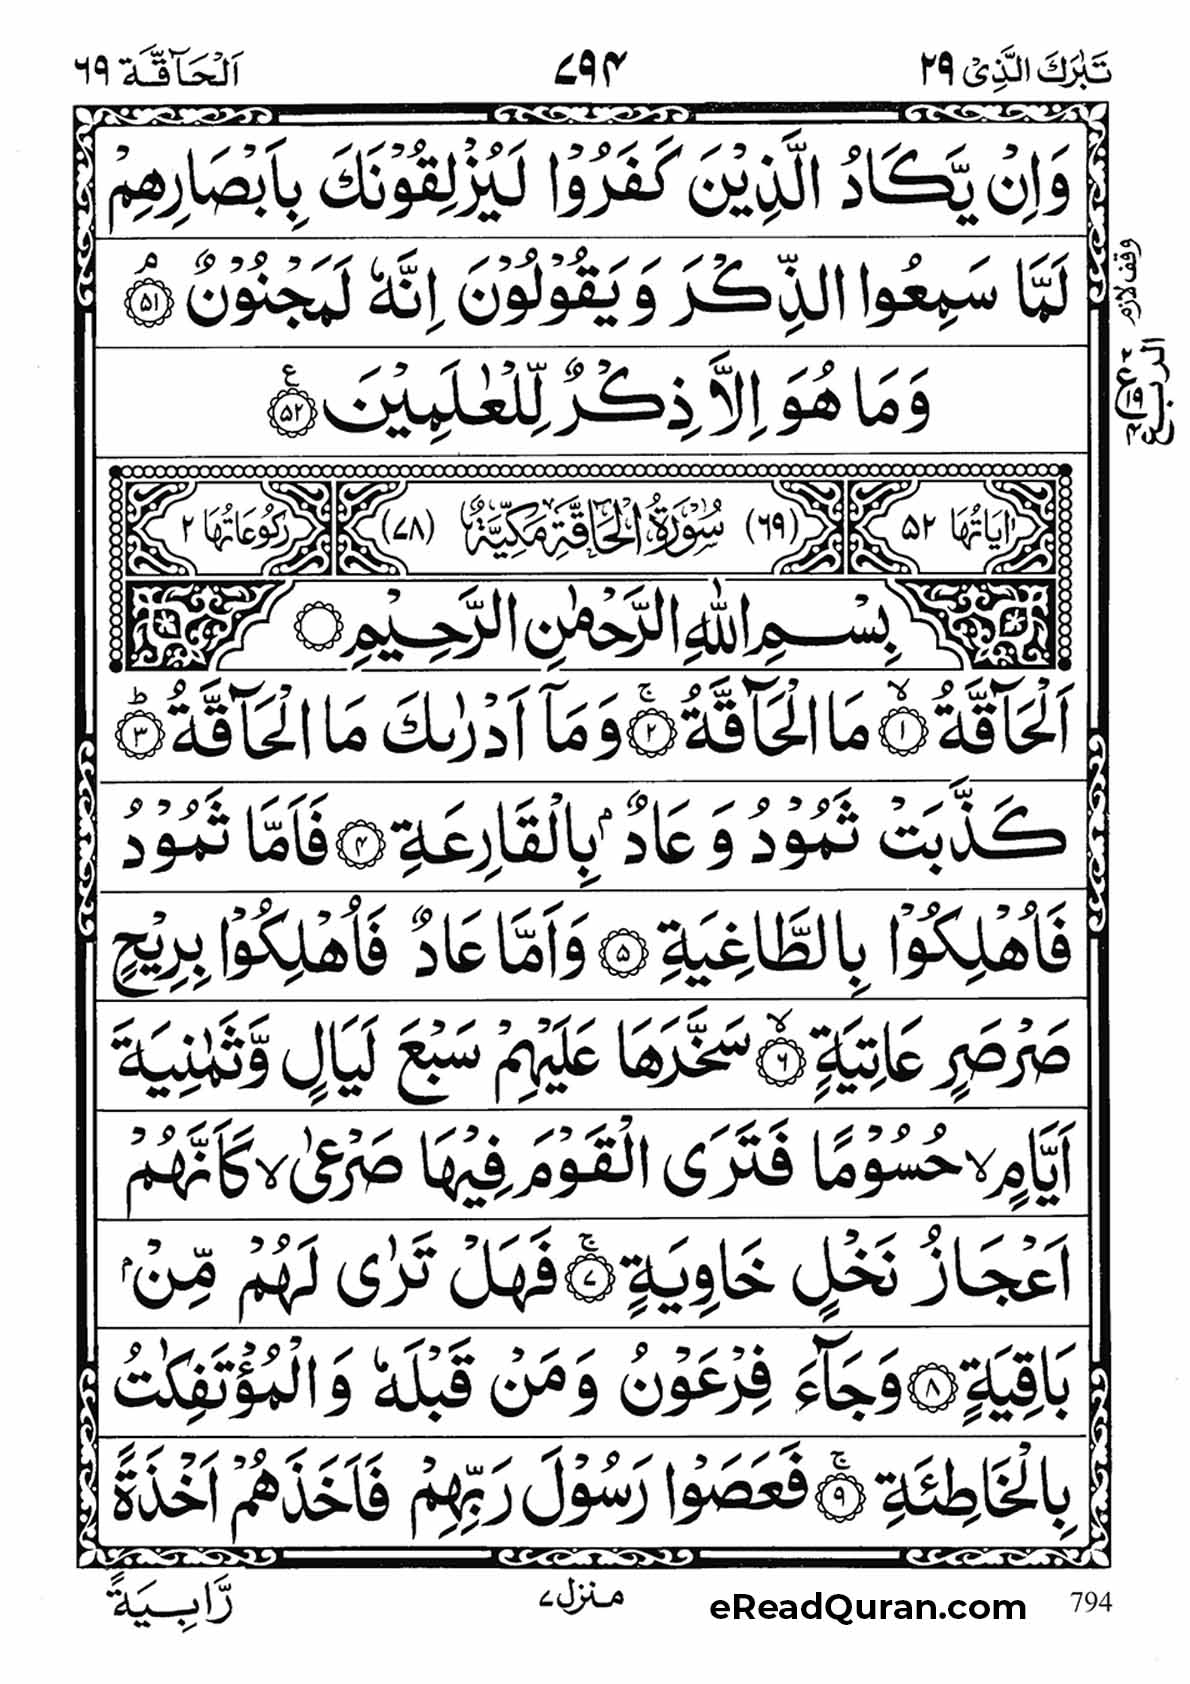 تَبٰرَكَ الَّذِیْ ۲۹
۷۹۴
اَلْحَآقَّة ۶۹
وَاِنْ یَّكَادُ الَّذِیْنَ كَفَرُوْا لَیُزْلِقُوْنَكَ بِاَبْصَارِهِمْ
لَمَّا سَمِعُوا الذِّكْرَ وَ یَقُوْلُوْنَ اِنَّهٗ لَمَجْنُوْنٌ ۘ‏﴿۵۱﴾
وقف لازم
وَمَا هُوَ اِلَّا ذِكْرٌ لِّلْعٰلَمِیْنَ ﴿۵۲﴾ ع
الربع
اٰیَاتُهَا ۵۲
(۶۹) سُوْرَةُ الْحَاقَّةِ مَكِّیَّةٌ (۷۸)
رَكُوْعَاتُهَا ۲
بِسْمِ اللّٰهِ الرَّحْمٰنِ الرَّحِیْمِ
اَلْحَآقَّةُ ﴿۱﴾ۙ مَا الْحَآقَّةُ ﴿۲﴾ۚ وَمَاۤ اَدْرٰىكَ مَا الْحَآقَّةُ ﴿۳﴾ؕ
كَذَّبَتْ ثَمُوْدُ وَ عَادٌۢ بِالْقَارِعَةِ ﴿۴﴾ فَاَمَّا ثَمُوْدُ
فَاُهْلِكُوْا بِالطَّاغِیَةِ ﴿۵﴾ وَاَمَّا عَادٌ فَاُهْلِكُوْا بِرِیْحٍ
صَرْصَرٍ عَاتِیَةٍ ﴿۶﴾ۙ سَخَّرَهَا عَلَیْهِمْ سَبْعَ لَیَالٍ وَّثَمٰنِیَةَ
اَیَّامٍ ۙ حُسُوْمًا فَتَرَی الْقَوْمَ فِیْهَا صَرْعٰی ۙ كَاَنَّهُمْ
اَعْجَازُ نَخْلٍ خَاوِیَةٍ ﴿۷﴾ۚ فَهَلْ تَرٰی لَهُمْ مِّنْۢ
بَاقِیَةٍ ﴿۸﴾ وَجَآءَ فِرْعَوْنُ وَمَنْ قَبْلَهٗ وَالْمُؤْتَفِكٰتُ
بِالْخَاطِئَةِ ﴿۹﴾ۚ فَعَصَوْا رَسُوْلَ رَبِّهِمْ فَاَخَذَهُمْ اَخْذَةً
رَّابِیَةً
منزل ۷
eReadQuran.com
794